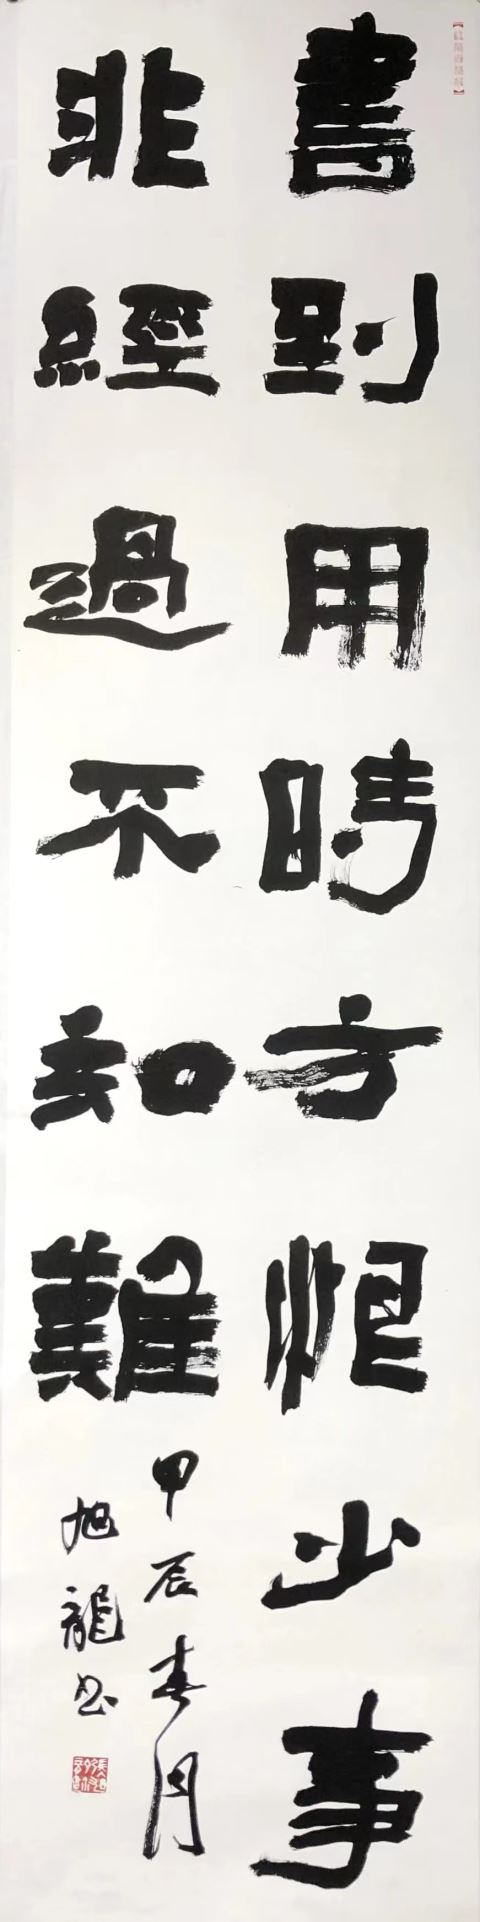 書到用時方恨少事
非經過不知難
甲辰春月
旭龍书